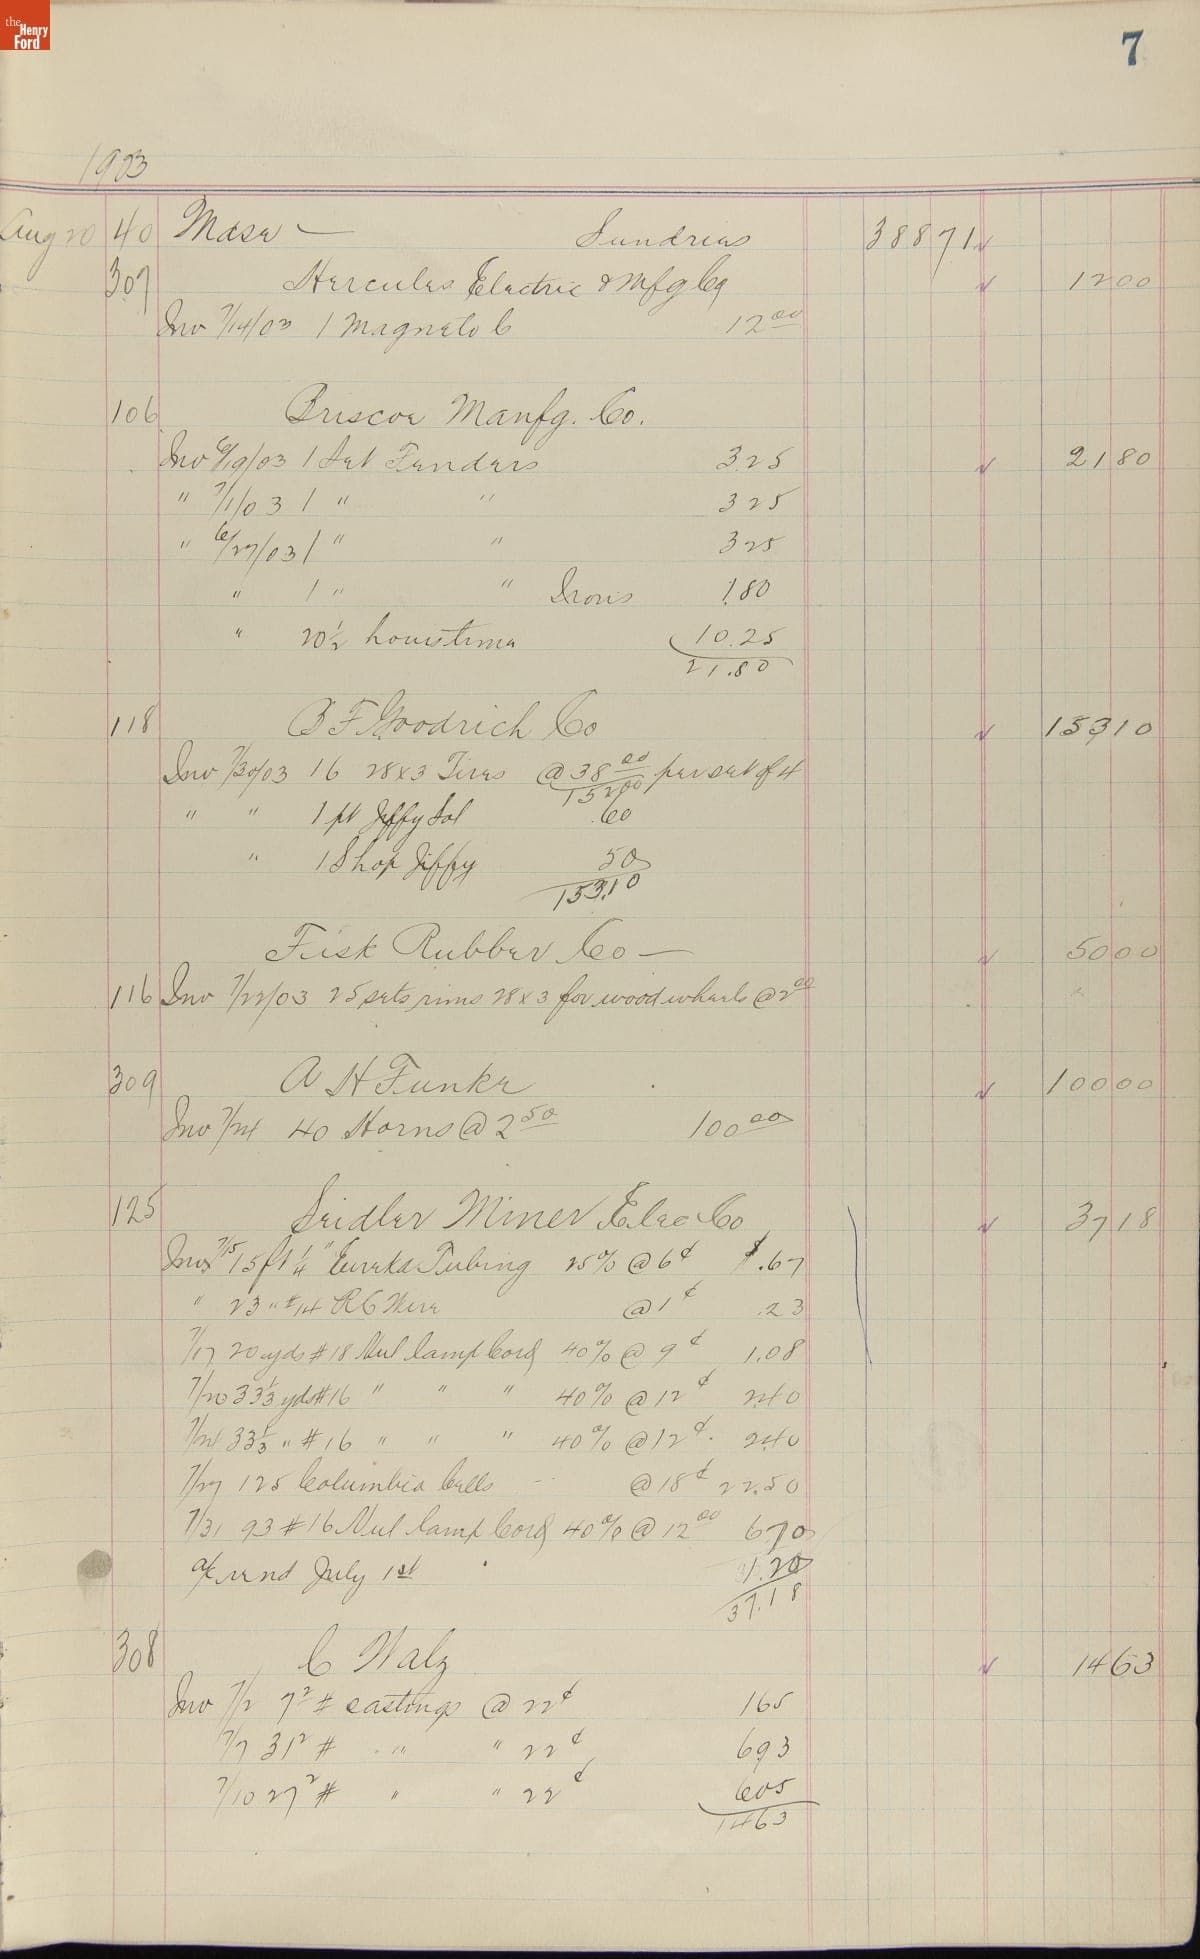 the Henry Ford
7
1903
Aug 20 40 Mdse — Sundries 388 71
307 Hercules Electric & Mfg Co 12 00
Inv 7/14/03 1 Magneto C 12 00
106 Briscoe Manfg. Co.
Inv 6/19/03 1 Set Fenders 3.25 21 80
" 7/1/03 1 " " 3 25
" 6/27/03 1 " " 3 25
" 1 " " Irons 1.80
" 20 1/2 hours time 10.25
21.80
118 B F Goodrich Co 153 10
Inv 7/30/03 16 28x3 Tires @ 38 00 per set of 4
152 00
" " 1 pt Jiffy Sol .60
" 1 Shop Jiffy 50
153.10
Fisk Rubber Co — 50 00
116 Inv 7/22/03 25 sets rims 28x3 for wood wheels @ 2 00
309 A H Funke 100 00
Inv 7/24 40 Horns @ 2 50 100 00
125 Seidler Miner Elec Co 37 18
Inv 7/15 15 ft 1/4" Eureka Tubing 25% @ 6¢ $.67
" 23 " #14 R C Wire @ 1¢ .23
7/17 20 yds #18 lamp Cord 40% @ 9¢ 1.08
7/20 33 1/3 yds #16 " " " 40% @ 12¢ 2.40
7/24 33 1/3 " #16 " " " 40% @ 12¢. 2.40
7/27 125 Columbia Cells @ 18¢ 22.50
7/31 93 #16 lamp Cord 40% @ 12 00 6 70
a/c rend July 1st 1.20
37.18
308 C Walz 14 63
Inv 7/2 7 2 # castings @ 22¢ 1 65
7/7 31 2 # " " 22¢ 6 93
7/10 27 2 # " " 22¢ 6 05
14 63